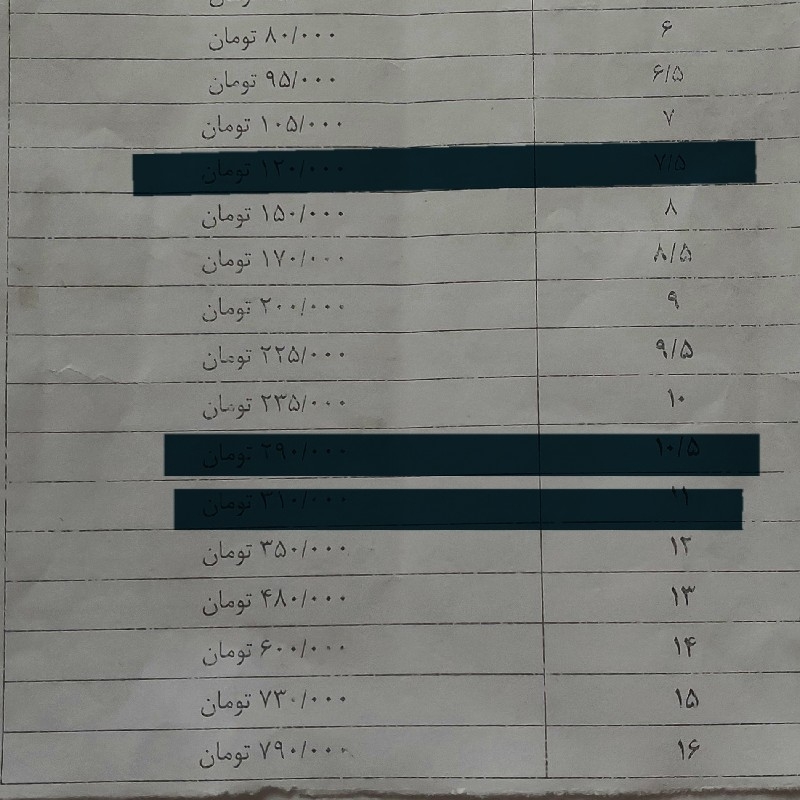 ۶ ۸۰/۰۰۰ تومان
۶/۵ ۹۵/۰۰۰ تومان
۷ ۱۰۵/۰۰۰ تومان
۷/۵ ۱۲۰/۰۰۰ تومان
۸ ۱۵۰/۰۰۰ تومان
۸/۵ ۱۷۰/۰۰۰ تومان
۹ ۲۰۰/۰۰۰ تومان
۹/۵ ۲۲۵/۰۰۰ تومان
۱۰ ۲۳۵/۰۰۰ تومان
۱۰/۵ ۲۹۰/۰۰۰ تومان
۱۱ ۳۱۰/۰۰۰ تومان
۱۲ ۳۵۰/۰۰۰ تومان
۱۳ ۴۸۰/۰۰۰ تومان
۱۴ ۶۰۰/۰۰۰ تومان
۱۵ ۷۳۰/۰۰۰ تومان
۱۶ ۷۹۰/۰۰۰ تومان